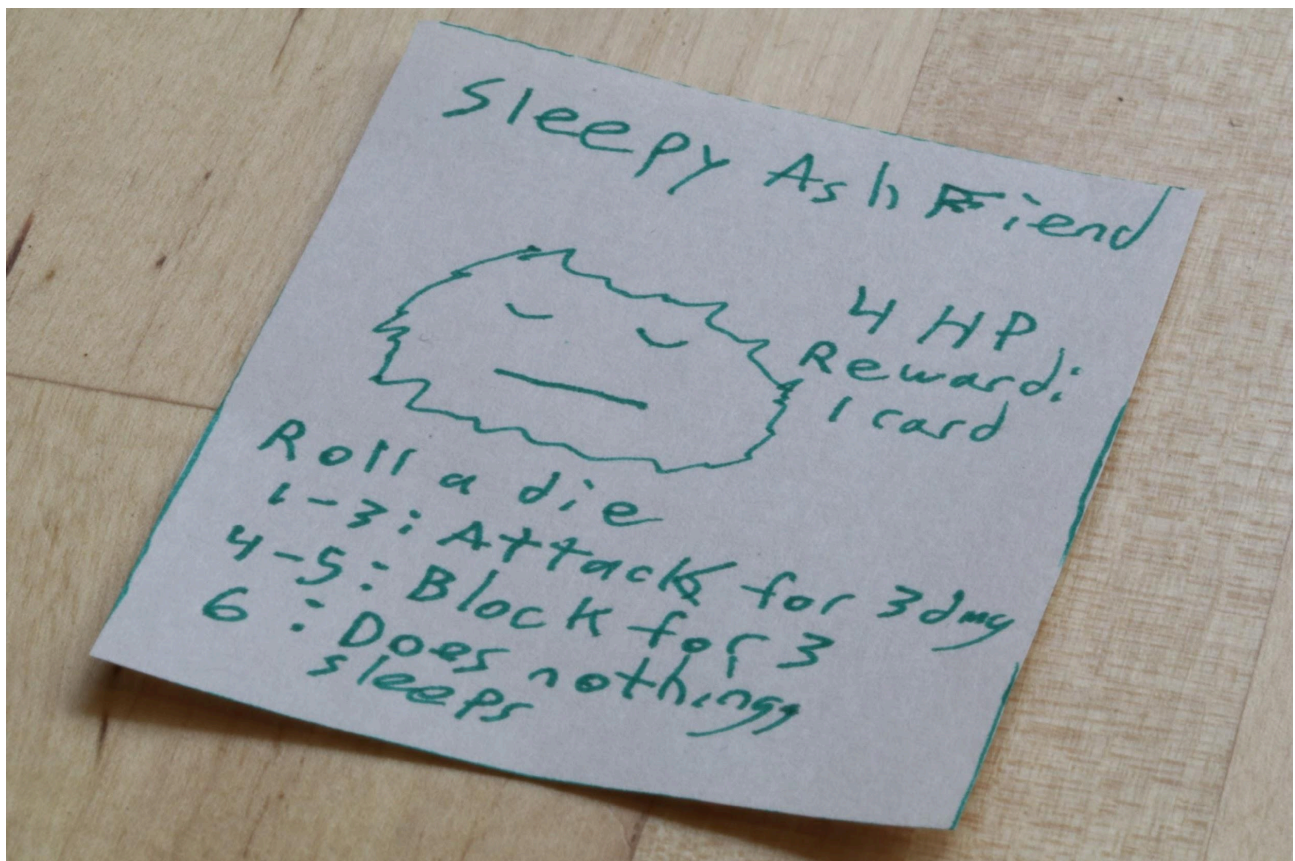 Sleepy Ash Fiend
4 HP
Reward:
1 card
Roll a die
1-3: Attack for 3 dmg
4-5: Block for 3
6: Does nothing,
sleeps